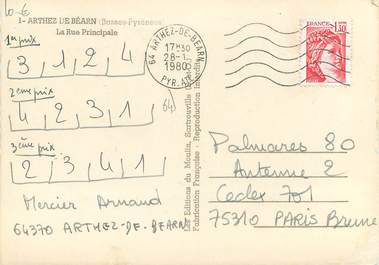 1- ARTHEZ DE BÉARN (Basses-Pyrénées)
La Rue Principale
1er prix
3 1 2 4
2eme prix
4 2 3 1
3ème prix
2 3 4 1
Mercier Arnaud
64370 ARTHEZ-DE-BEARN
Les Editions du Moulin, Sartrouville
Fabrication Française - Reproduction Interdite
64 ARTHEZ-DE-BEARN
17H30
28-1
1980
PYR. ATL.
FRANCE
1,30
Palmares 80
Antenne 2
Cedex 701
75310 PARIS Brune